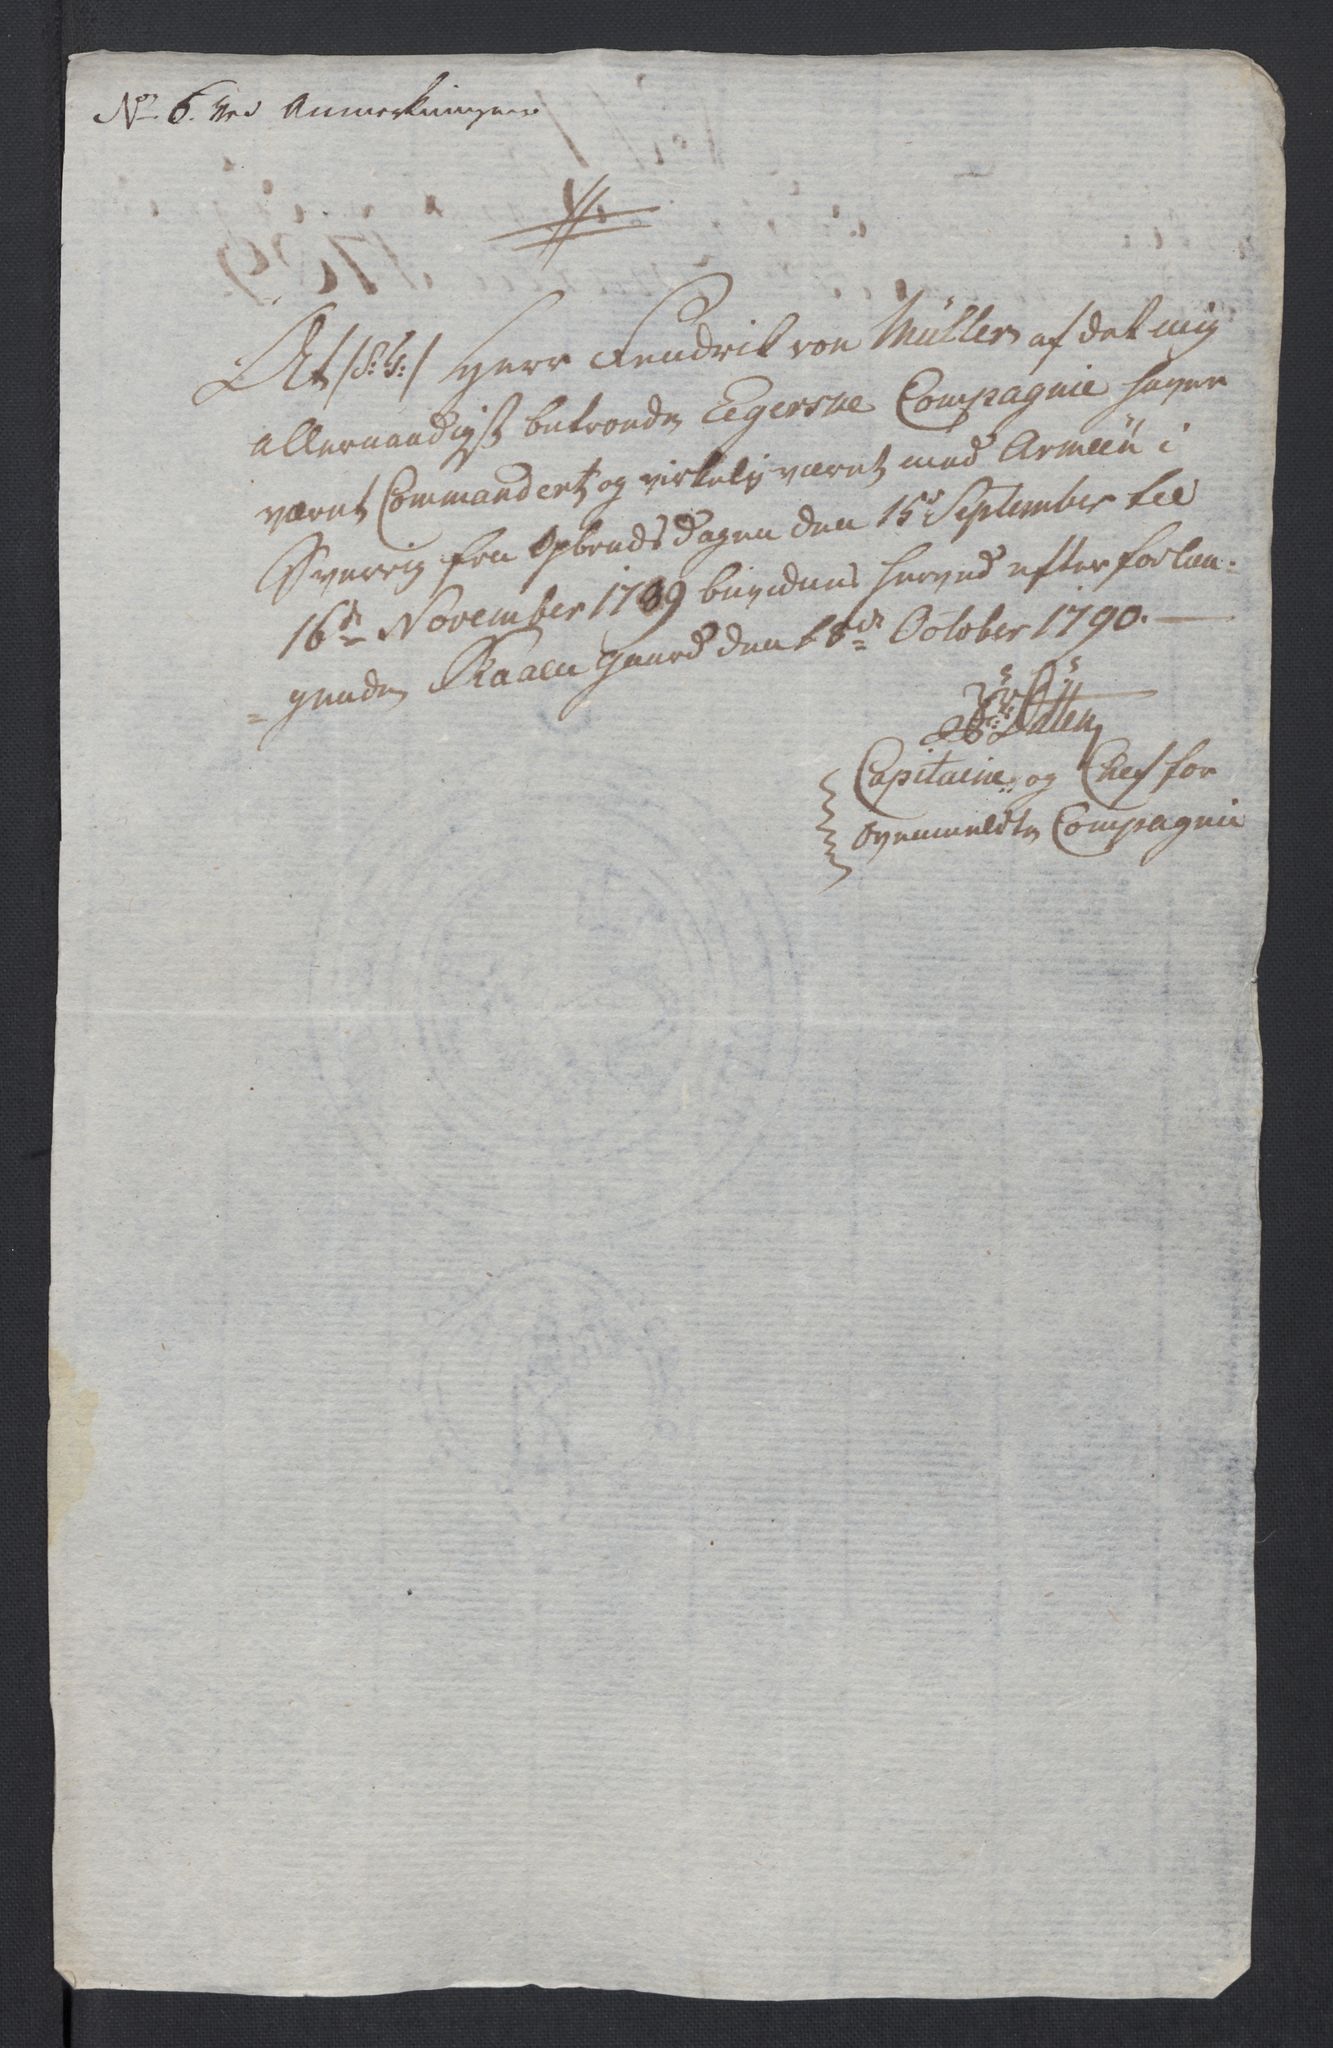 No 6. ved Anmerkningerne
At /S: T:/ Herr Fendrik von Müller af det mig
allernaadigst betroede Egerske Compagnie haver
været Commanderet og virkelig været med Armeen i
Sverrig fra Opbruds Dagen den 15de September til
16de November 1789 bevidnes herved efter forlan-
gende Skaalen Gaard den 18de October 1790.
Capitaine og Chef for
ovenmeldte Compagnie